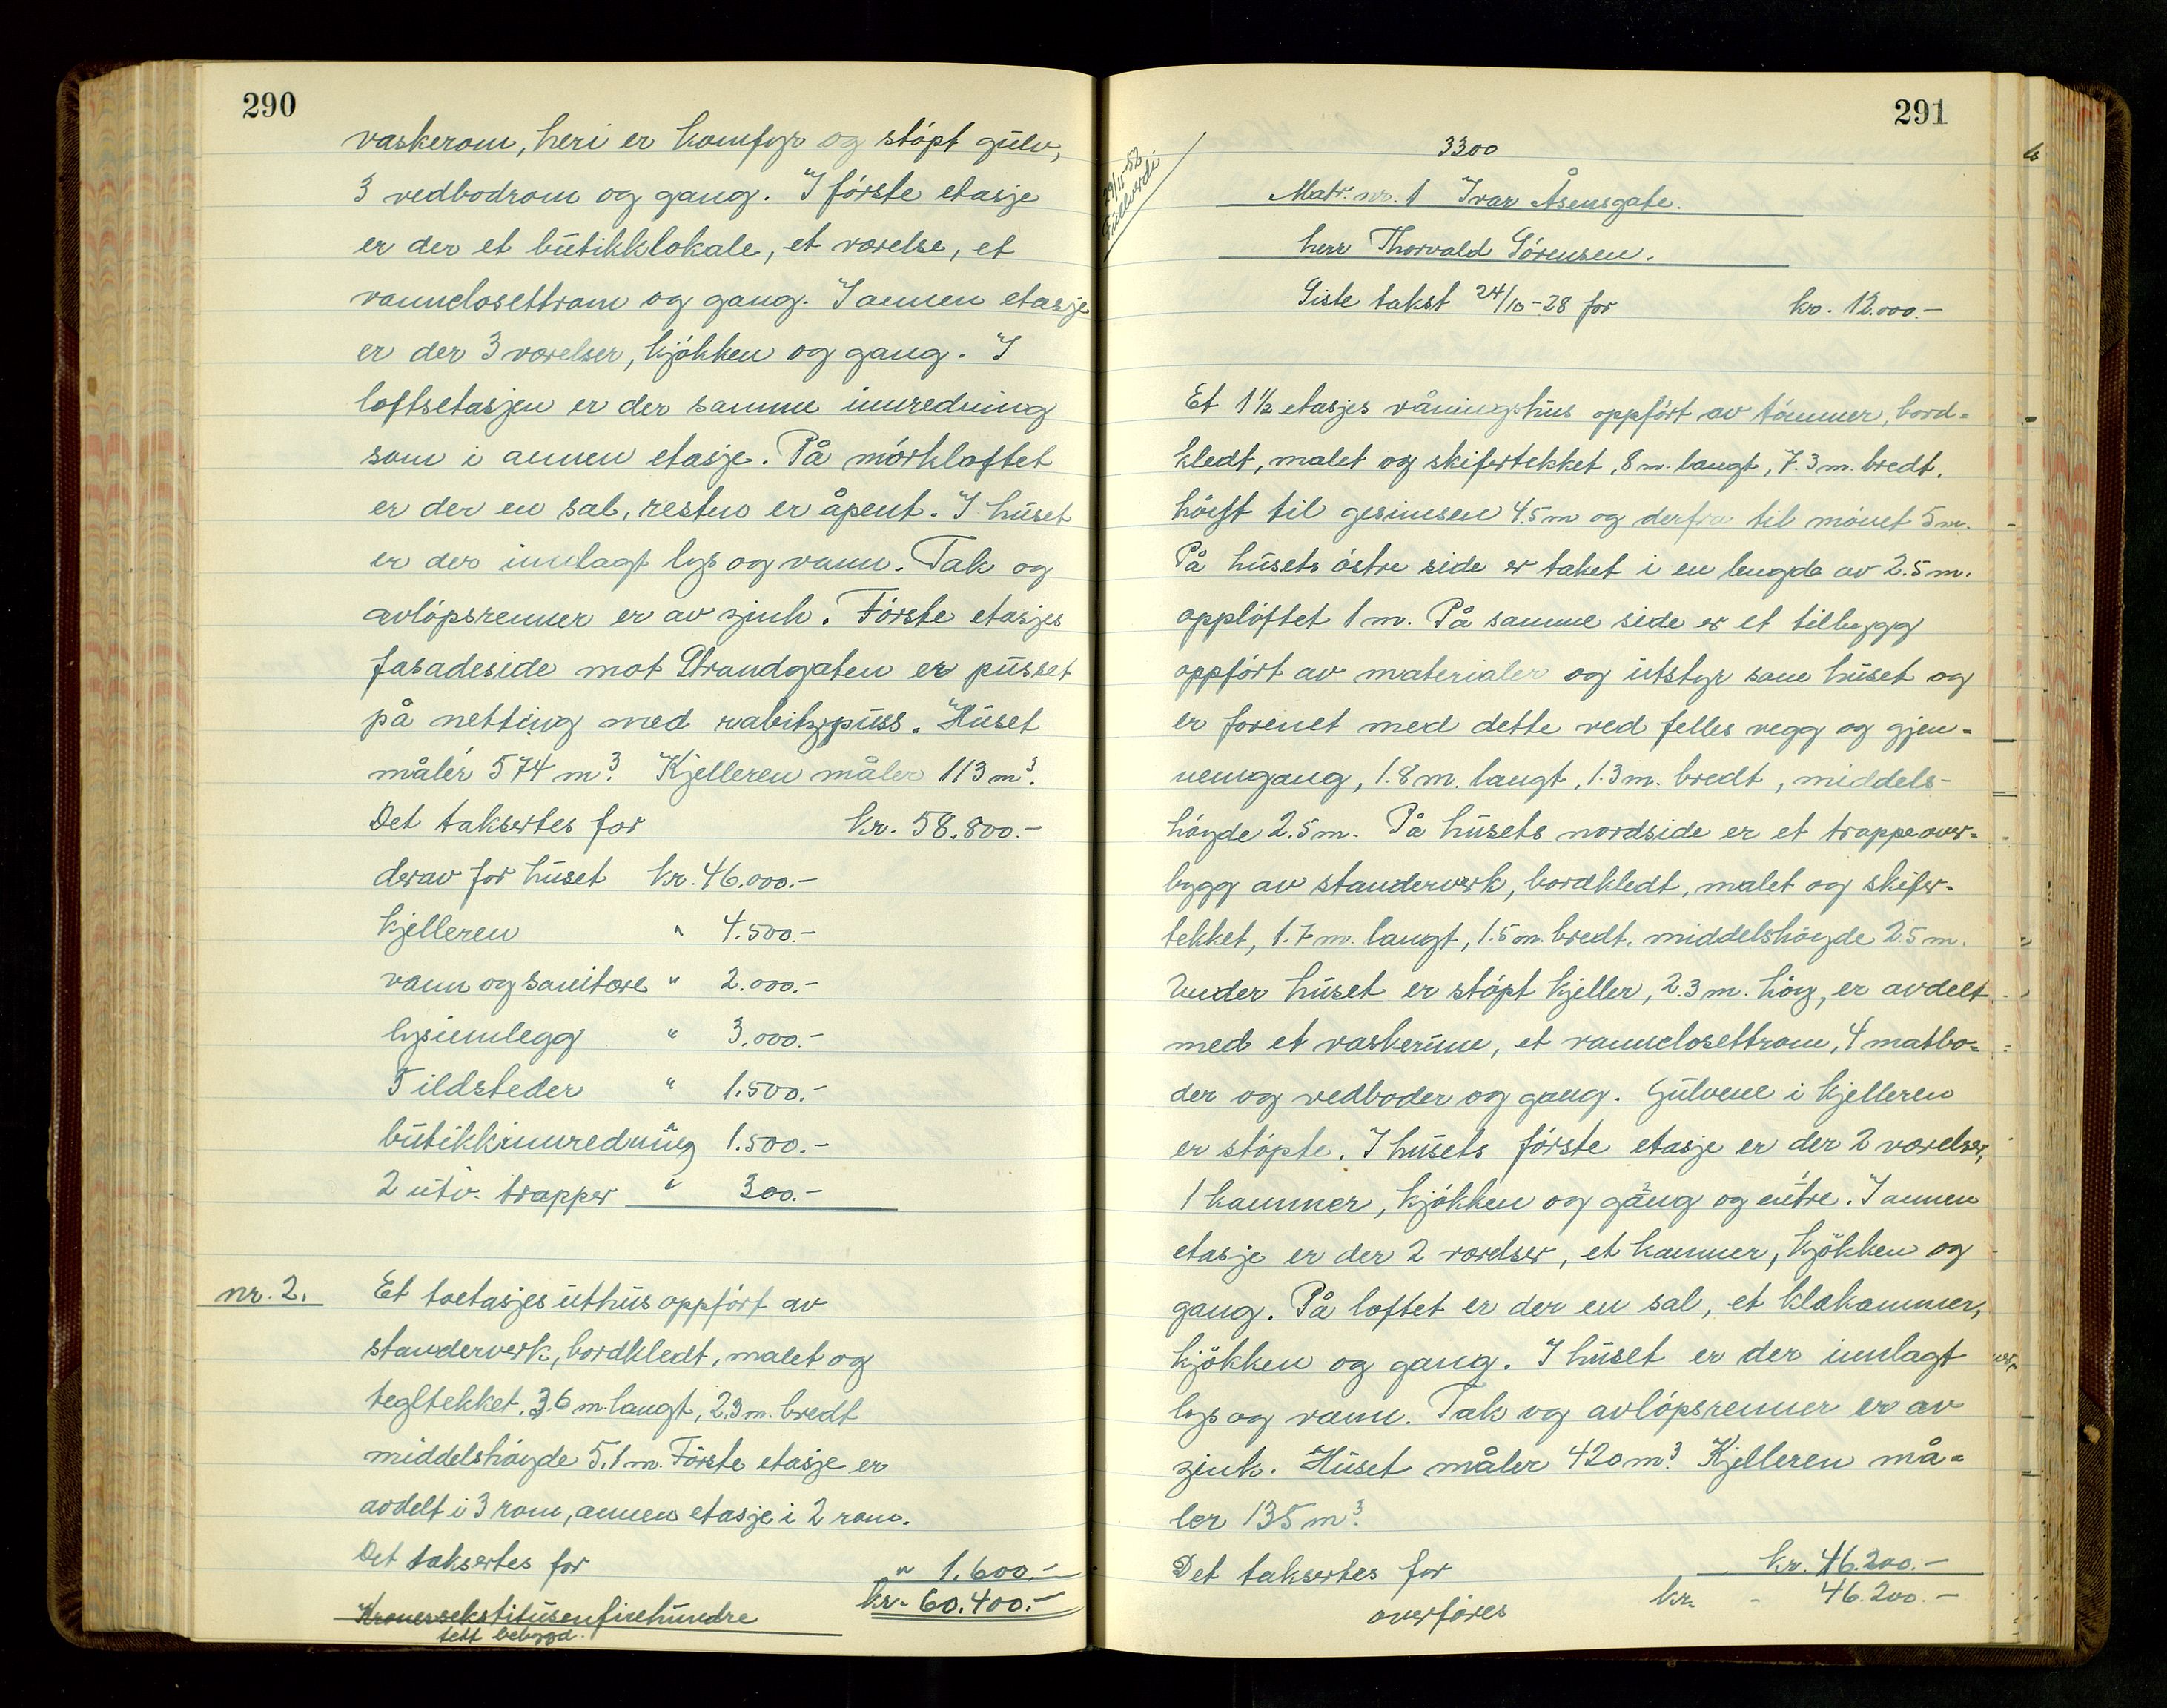 290
vaskerom, heri er komfyr og støpt gulv,
3 vedbodrom og gang. I første etasje
er der et butikklokale, et værelse, et
vannclosettrom og gang. I annen etasje
er der 3 værelser, kjøkken og gang. I
loftsetasjen er der samme innredning
som i annen etasje. På mørkloftet
er der en sal, resten er åpent. I huset
er der innlagt lys og vann. Tak og
avløpsrenner er av zink. Første etasjes
fasadeside mot Strandgaten er pusset
på netting med rabitzpuss. Huset
måler 574 m³. Kjelleren måler 113 m³.
Det takseres for kr. 58.800.-
derav for huset kr. 46.000.-
kjelleren " 4.500.-
vann og sanitære " 2.000.-
lysinnlegg " 3.000.-
5 ildsteder " 1.500.-
butikkinnredning 1.500.-
2 utv. trapper " 300.-
nr. 2. Et toetasjes uthus oppført av
standerverk, bordkledt, malet og
tegltekket, 3.6 m. langt, 2.3 m. bredt
middelshøyde 5.1 m. Første etasje er
avdelt i 3 rom, annen etasje i 2 rom.
Det takseres for " 1.600.-
Kronersekstitusenfirehundre kr. 60.400.-
tett bebygd.
291
3300
Fullverdi
Matr. nr. 1 Ivar Åsensgate.
herr Thorvald Sørensen.
Siste takst 24/10-28 for kr. 12.000.-
Et 1½ etasjes våningshus oppført av tømmer, bord=
kledt, malet og skifertekket, 8 m. langt, 7.3 m. bredt,
høyt til gesimsen 4.5 m og derfra til mønet 5 m.
På husets østre side er taket i en lengde av 2.5 m.
oppløftet 1 m. På samme side er et tilbygg
oppført av materialer og utstyr som huset og
er forenet med dette ved felles vegg og gjen=
nemgang, 1.8 m. langt, 1.3 m. bredt, middels-
høyde 2.5 m. På husets nordside er et trappeover=
bygg av standerverk, bordkledt, malet og skifer=
tekket, 1.7 m. langt, 1.5 m. bredt, middelshøyde 2.5 m.
Under huset er støpt kjeller, 2.3 m. høy, er avdelt
med et vaskerum, et vannclosettrom, 4 matbo=
der og vedboder og gang. Gulvene i kjelleren
er støpte. I husets første etasje er der 2 værelser,
1 kammer, kjøkken og gang og entre. I annen
etasje er der 2 værelser, et kammer, kjøkken og
gang. På loftet er der en sal, et klakammer,
kjøkken og gang. I huset er der innlagt
lys og vann. Tak og avløpsrenner er av
zink. Huset måler 420 m³. Kjelleren må=
ler 135 m³.
Det takseres for kr. 46.200.-
overføres kr. - 46.200.-